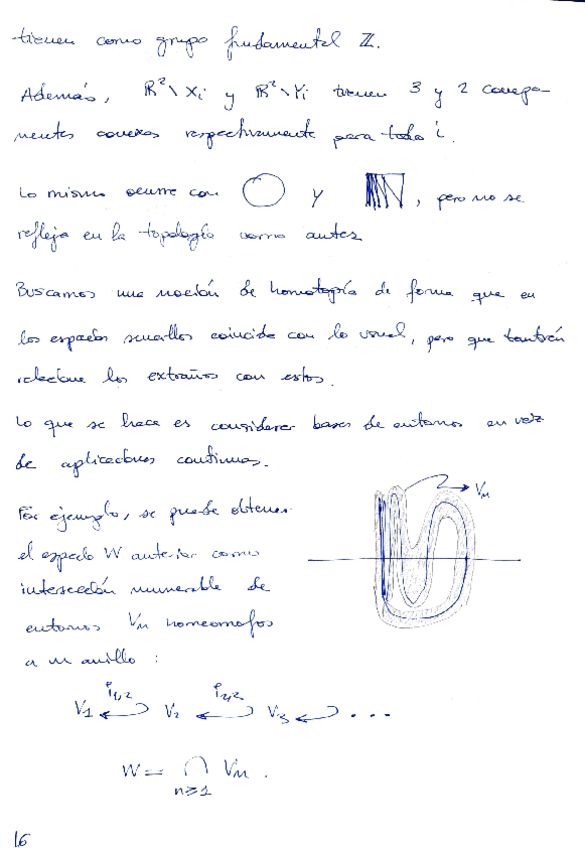 tienen como grupo fundamental ℤ.
Además, ℝ² \ Xi y ℝ² \ Yi tienen 3 y 2 compo-
nentes conexas respectivamente para todo i.
Lo mismo ocurre con y , pero no se
refleja en la topología como antes
Buscamos una noción de homotopía de forma que en
los espacios sencillos coincida con la usual, pero que también
relacione los extraños con estos.
Lo que se hace es considerar bases de entornos en vez
de aplicaciones continuas.
Por ejemplo, se puede obtener
el espacio W anterior como
intersección numerable de
entornos Vn homeomofos
a un anillo :
Vn
i1,2 i2,3
V1 ↩ V2 ↩ V3 ↩ ...
W = ∩ Vn .
n≥1
16